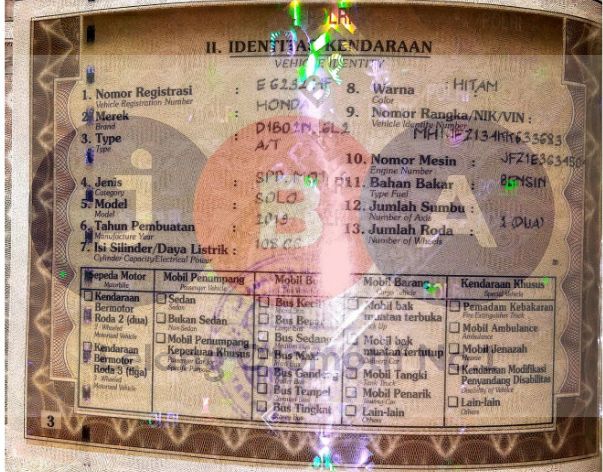 II. IDENTITAS KENDARAAN
VEHICLE IDENTITY
1. Nomor Registrasi :
Vehicle Registration Number
2. Merek : HONDA
Brand
3. Type :
Type
A/T
4. Jenis :
Category
5. Model : SOLO
Model
6. Tahun Pembuatan : 2019
Manufacture Year
7. Isi Silinder/Daya Listrik : 108 CC
Cylinder Capacity/Electrical Power
8. Warna : HITAM
Color
9. Nomor Rangka/NIK/VIN :
Vehicle Identity Number
10. Nomor Mesin :
Engine Number
11. Bahan Bakar : BENSIN
Type Fuel
12. Jumlah Sumbu :
Number of Axis
13. Jumlah Roda : 2 (DUA)
Number of Wheels
Sepeda Motor
Motorbike
Kendaraan
Bermotor
Roda 2 (dua)
2 Wheeled
Motorized Vehicle
Kendaraan
Bermotor
Roda 3 (tiga)
3 Wheeled
Motorized Vehicle
Mobil Penumpang
Passenger Vehicle
Sedan
Sedan
Bukan Sedan
Non Sedan
Mobil Penumpang
Keperluan Khusus
Passenger Car for
Specific Purpose
Mobil Bus
Bus Kecil
Bus Besar
Bus Sedang
Bus Maxi
Bus Gandeng
Bus Tempel
Bus Tingkat
Mobil Barang
Mobil bak
muatan terbuka
Pick Up
Mobil bak
muatan tertutup
Mobil Tangki
Tank Truck
Mobil Penarik
Lain-lain
Others
Kendaraan Khusus
Special Vehicle
Pemadam Kebakaran
Fire Extinguisher Truck
Mobil Ambulance
Ambulance
Mobil Jenazah
Kendaraan Modifikasi
Penyandang Disabilitas
Lain-lain
Others
3
i B A